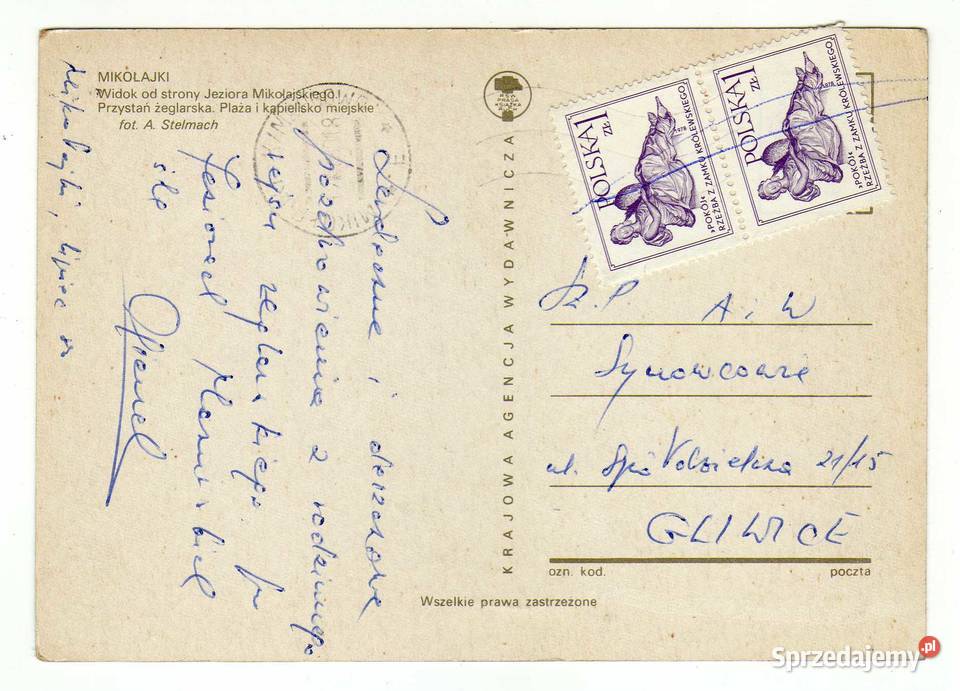 MIKOŁAJKI
Widok od strony Jeziora Mikołajskiego.
Przystań żeglarska. Plaża i kąpielisko miejskie
fot. A. Stelmach
Mikołajki, lipiec
Serdeczne i deszczowe
pozdrowienia z rodzinnego
rejsu żeglarskiego po
Jeziorach Mazurskich
śle
KRAJOWA AGENCJA WYDAWNICZA
RSW PRASA KSIĄŻKA RUCH
POLSKA 1 ZŁ
1978
„POKÓJ”
RZEŹBA Z ZAMKU KRÓLEWSKIEGO
POLSKA 1 ZŁ
1978
„POKÓJ”
RZEŹBA Z ZAMKU KRÓLEWSKIEGO
Sz. P. A i W
Synowcowie
ul. Spółdzielcza 21/15
GLIWICE
ozn. kod. poczta
Wszelkie prawa zastrzeżone
Sprzedajemy.pl